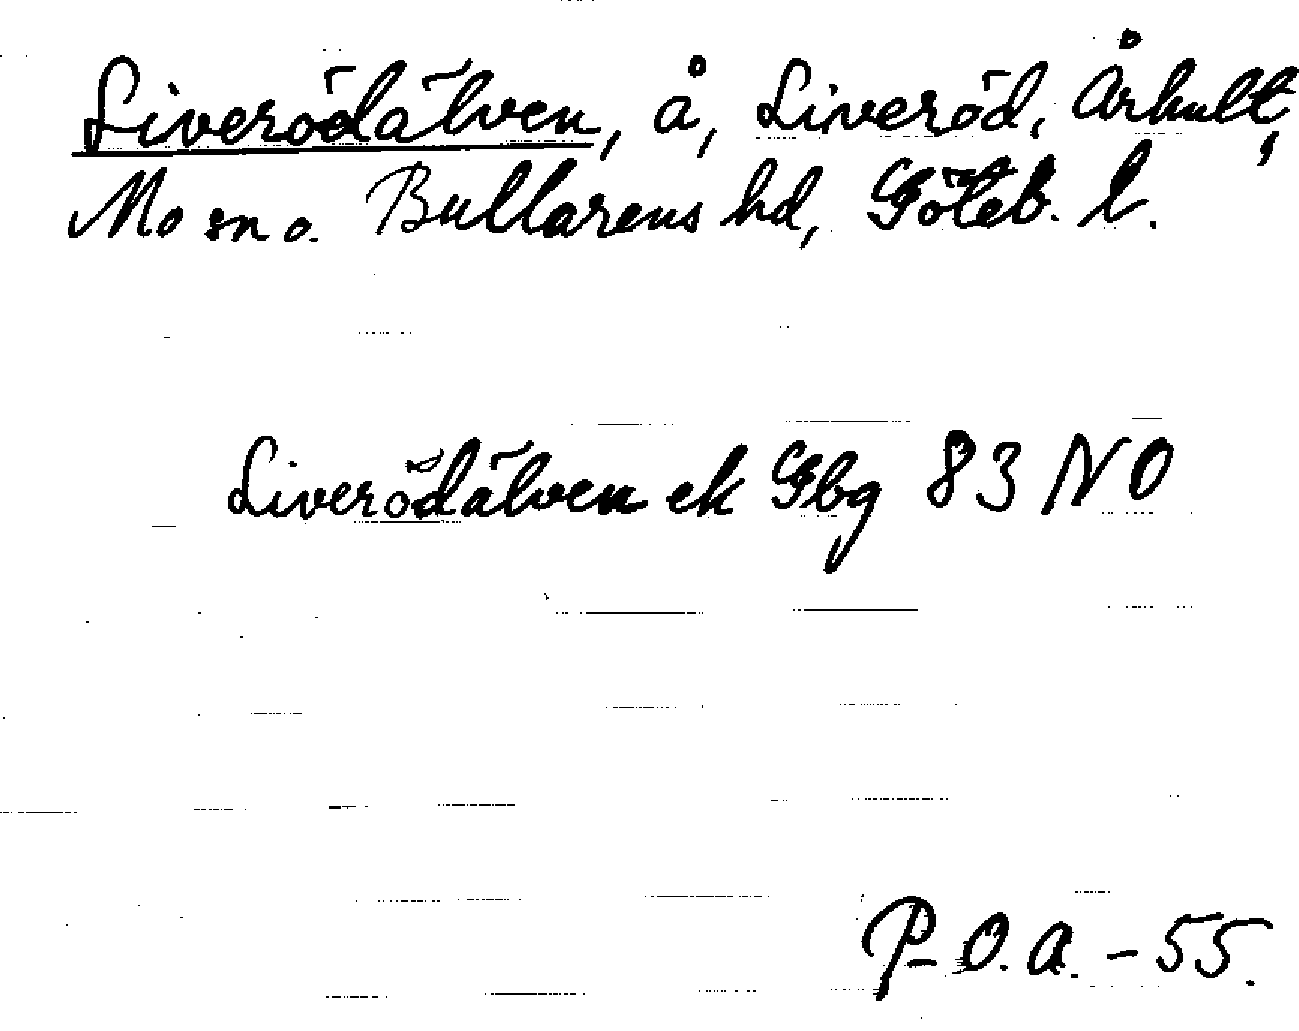 Liverödälven, å, Liveröd, Århult,
Mo sn o. Bullarens hd, Göteb. l.
Liverödälven ek Gbg 83 NO
P-O.A. - 55.